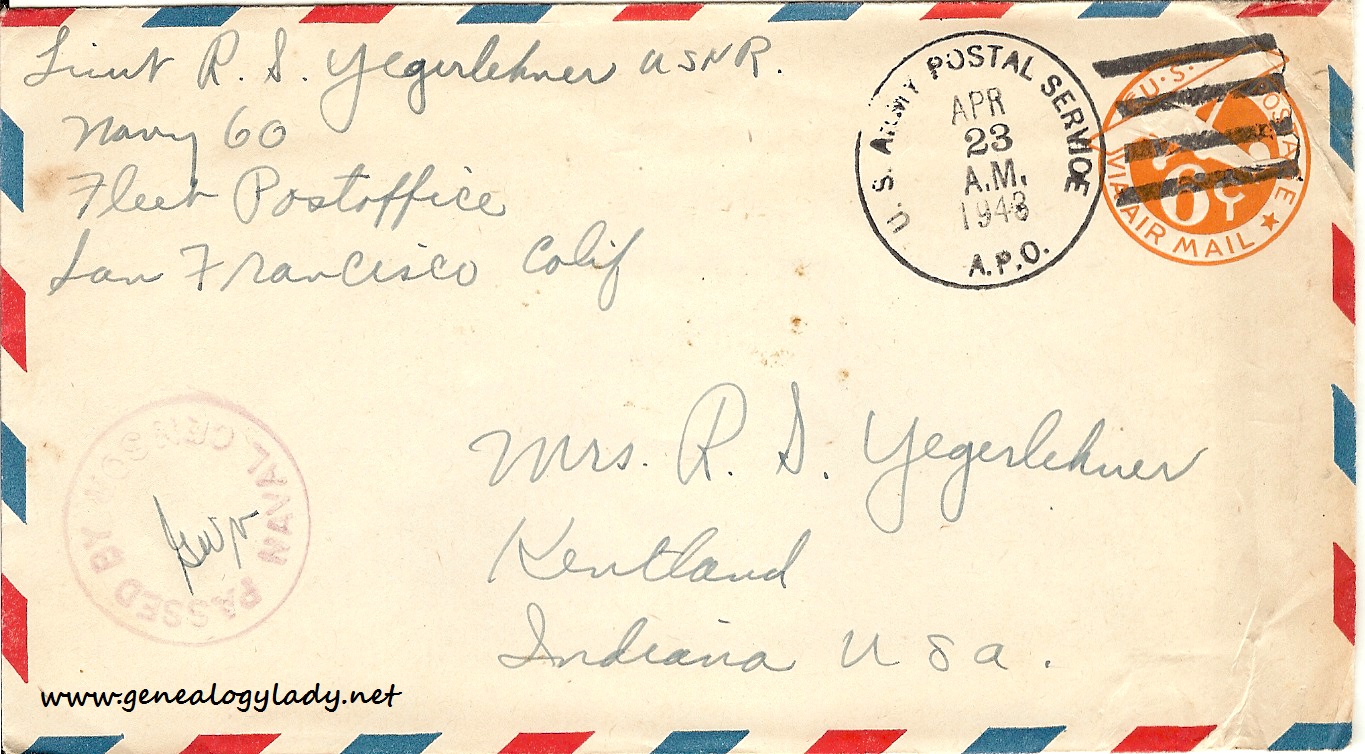 Lieut R. S. Yegerlehner USNR.
Navy 60
Fleet Postoffice
San Francisco Calif
U. S. ARMY POSTAL SERVICE
APR
23
A.M.
1943
A.P.O.
U.S. POSTAGE
6¢
VIA AIR MAIL
Mrs. R. S. Yegerlehner
Kentland
Indiana U S a.
PASSED BY NAVAL CENSOR
www.genealogylady.net